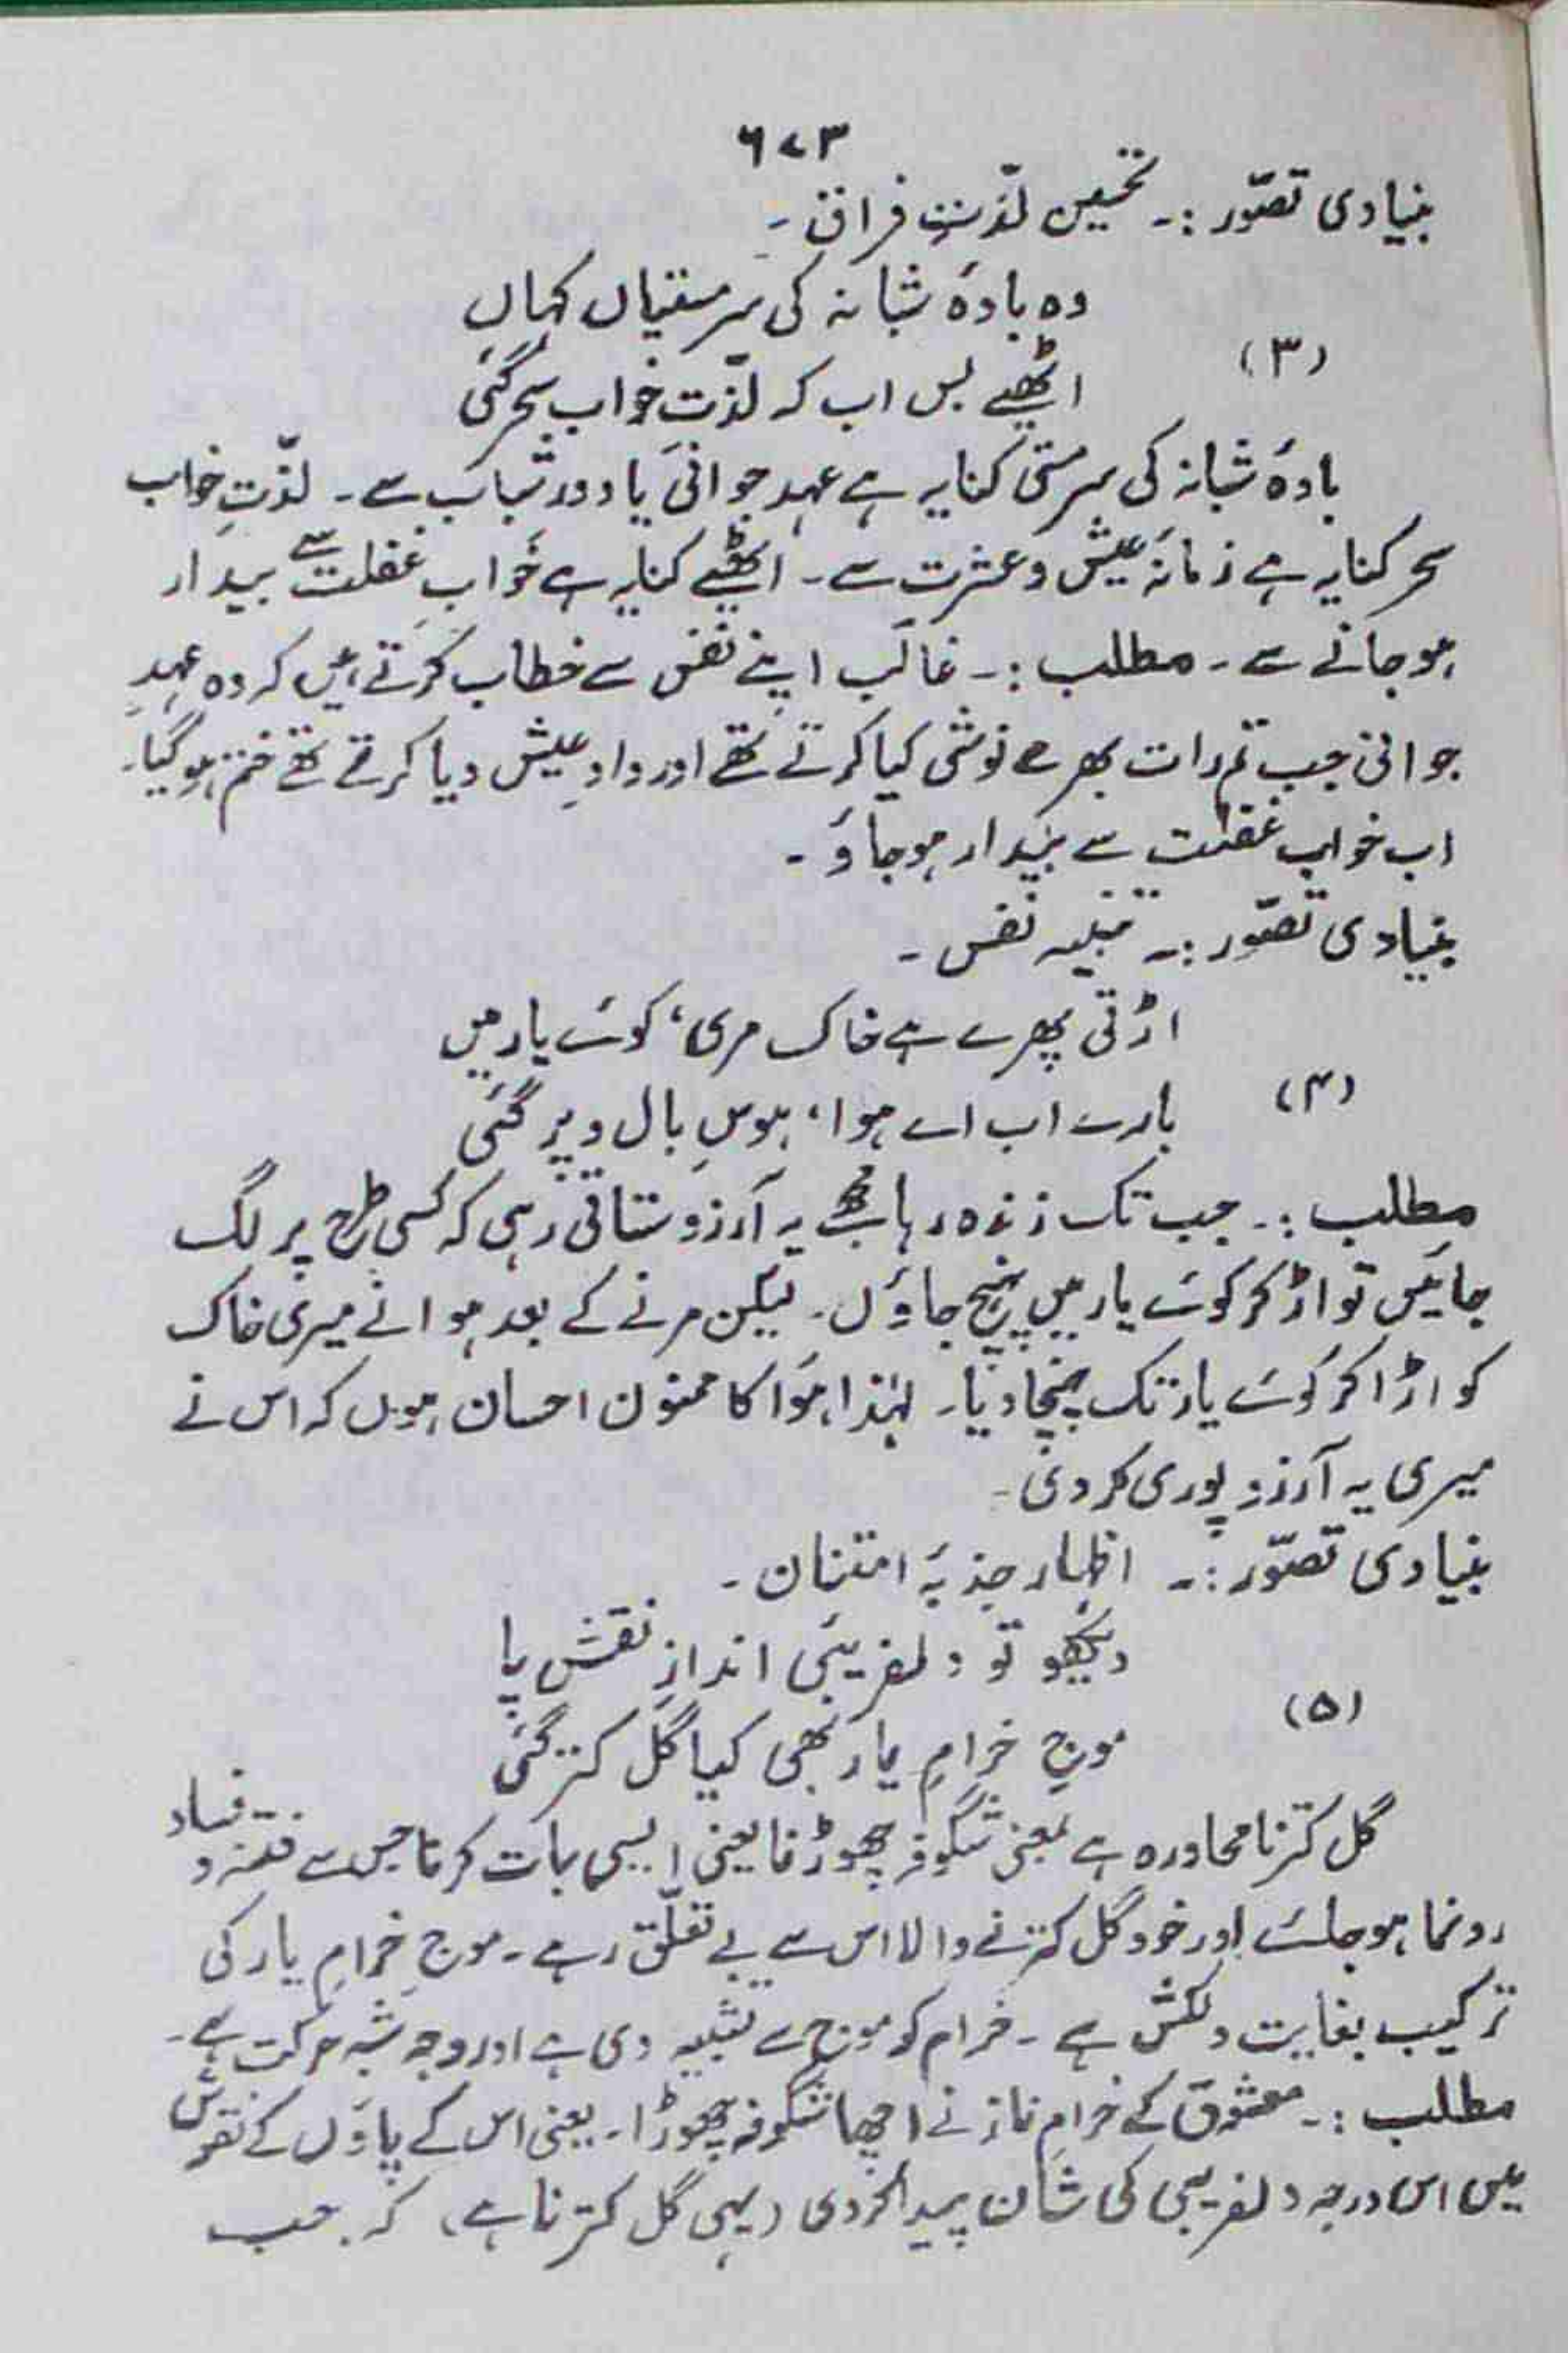 ۶۷۳
بنیادی تصوّر :۔ تحسین لذّتِ فراق ۔
وہ بادۂ شبانہ کی سرمستیاں کہاں
(۳)
اٹھیے بس اب کہ لذّت خواب سحر گئی
بادۂ شبانہ کی سرمستی کنایہ ہے عہد جوانی یا دور شباب سے ۔ لذّتِ خواب
سحر کنایہ ہے زمانۂ عیش و عشرت سے ۔ اٹھیے کنایہ ہے خوابِ غفلت سے بیدار
ہو جانے سے ۔ مطلب :۔ غالب اپنے نفس سے خطاب کرتے ہیں کہ وہ عہدِ
جوانی جب تم رات بھر مے نوشی کیا کرتے تھے اور دادِ عیش دیا کرتے تھے ختم ہو گیا۔
اب خوابِ غفلت سے بیدار ہو جاؤ ۔
بنیادی تصوّر :۔ تنبیہ نفس ۔
اڑتی پھرے ہے خاک مری، کوئے یار میں
(۴)
بارے اب اے ہوا، ہوسِ بال و پر گئی
مطلب :۔ جب تک زندہ رہا مجھے یہ آرزو ستاتی رہی کہ کسی طرح پر لگ
جائیں تو اڑ کر کوئے یار میں پہنچ جاؤں ۔ لیکن مرنے کے بعد ہوا نے میری خاک
کو اڑا کر کوئے یار تک پہنچا دیا ۔ لہٰذا ہوا کا ممنون احسان ہوں کہ اس نے
میری یہ آرزو پوری کر دی ۔
بنیادی تصوّر :۔ اظہار جذبۂ امتنان ۔
دیکھو تو دلفریبیٔ اندازِ نقش پا
(۵)
موجِ خرامِ یار بھی کیا گل کتر گئی
گل کترنا محاورہ ہے بمعنی شگوفہ چھوڑنا یعنی ایسی بات کرنا جس سے فتنہ و فساد
رونما ہو جائے اور خود گل کترنے والا اس سے بے تعلّق رہے ۔ موجِ خرامِ یار کی
ترکیب بغایت دلکش ہے ۔ خرام کو موج سے تشبیہ دی ہے اور وجہ شبہ حرکت ہے ۔
مطلب :۔ معشوق کے خرامِ ناز نے اچھا شگوفہ چھوڑا ۔ یعنی اس کے پاؤں کے نقوش
میں اس درجہ دلفریبی کی شان پیدا کر دی (یہی گل کترنا ہے) کہ جب